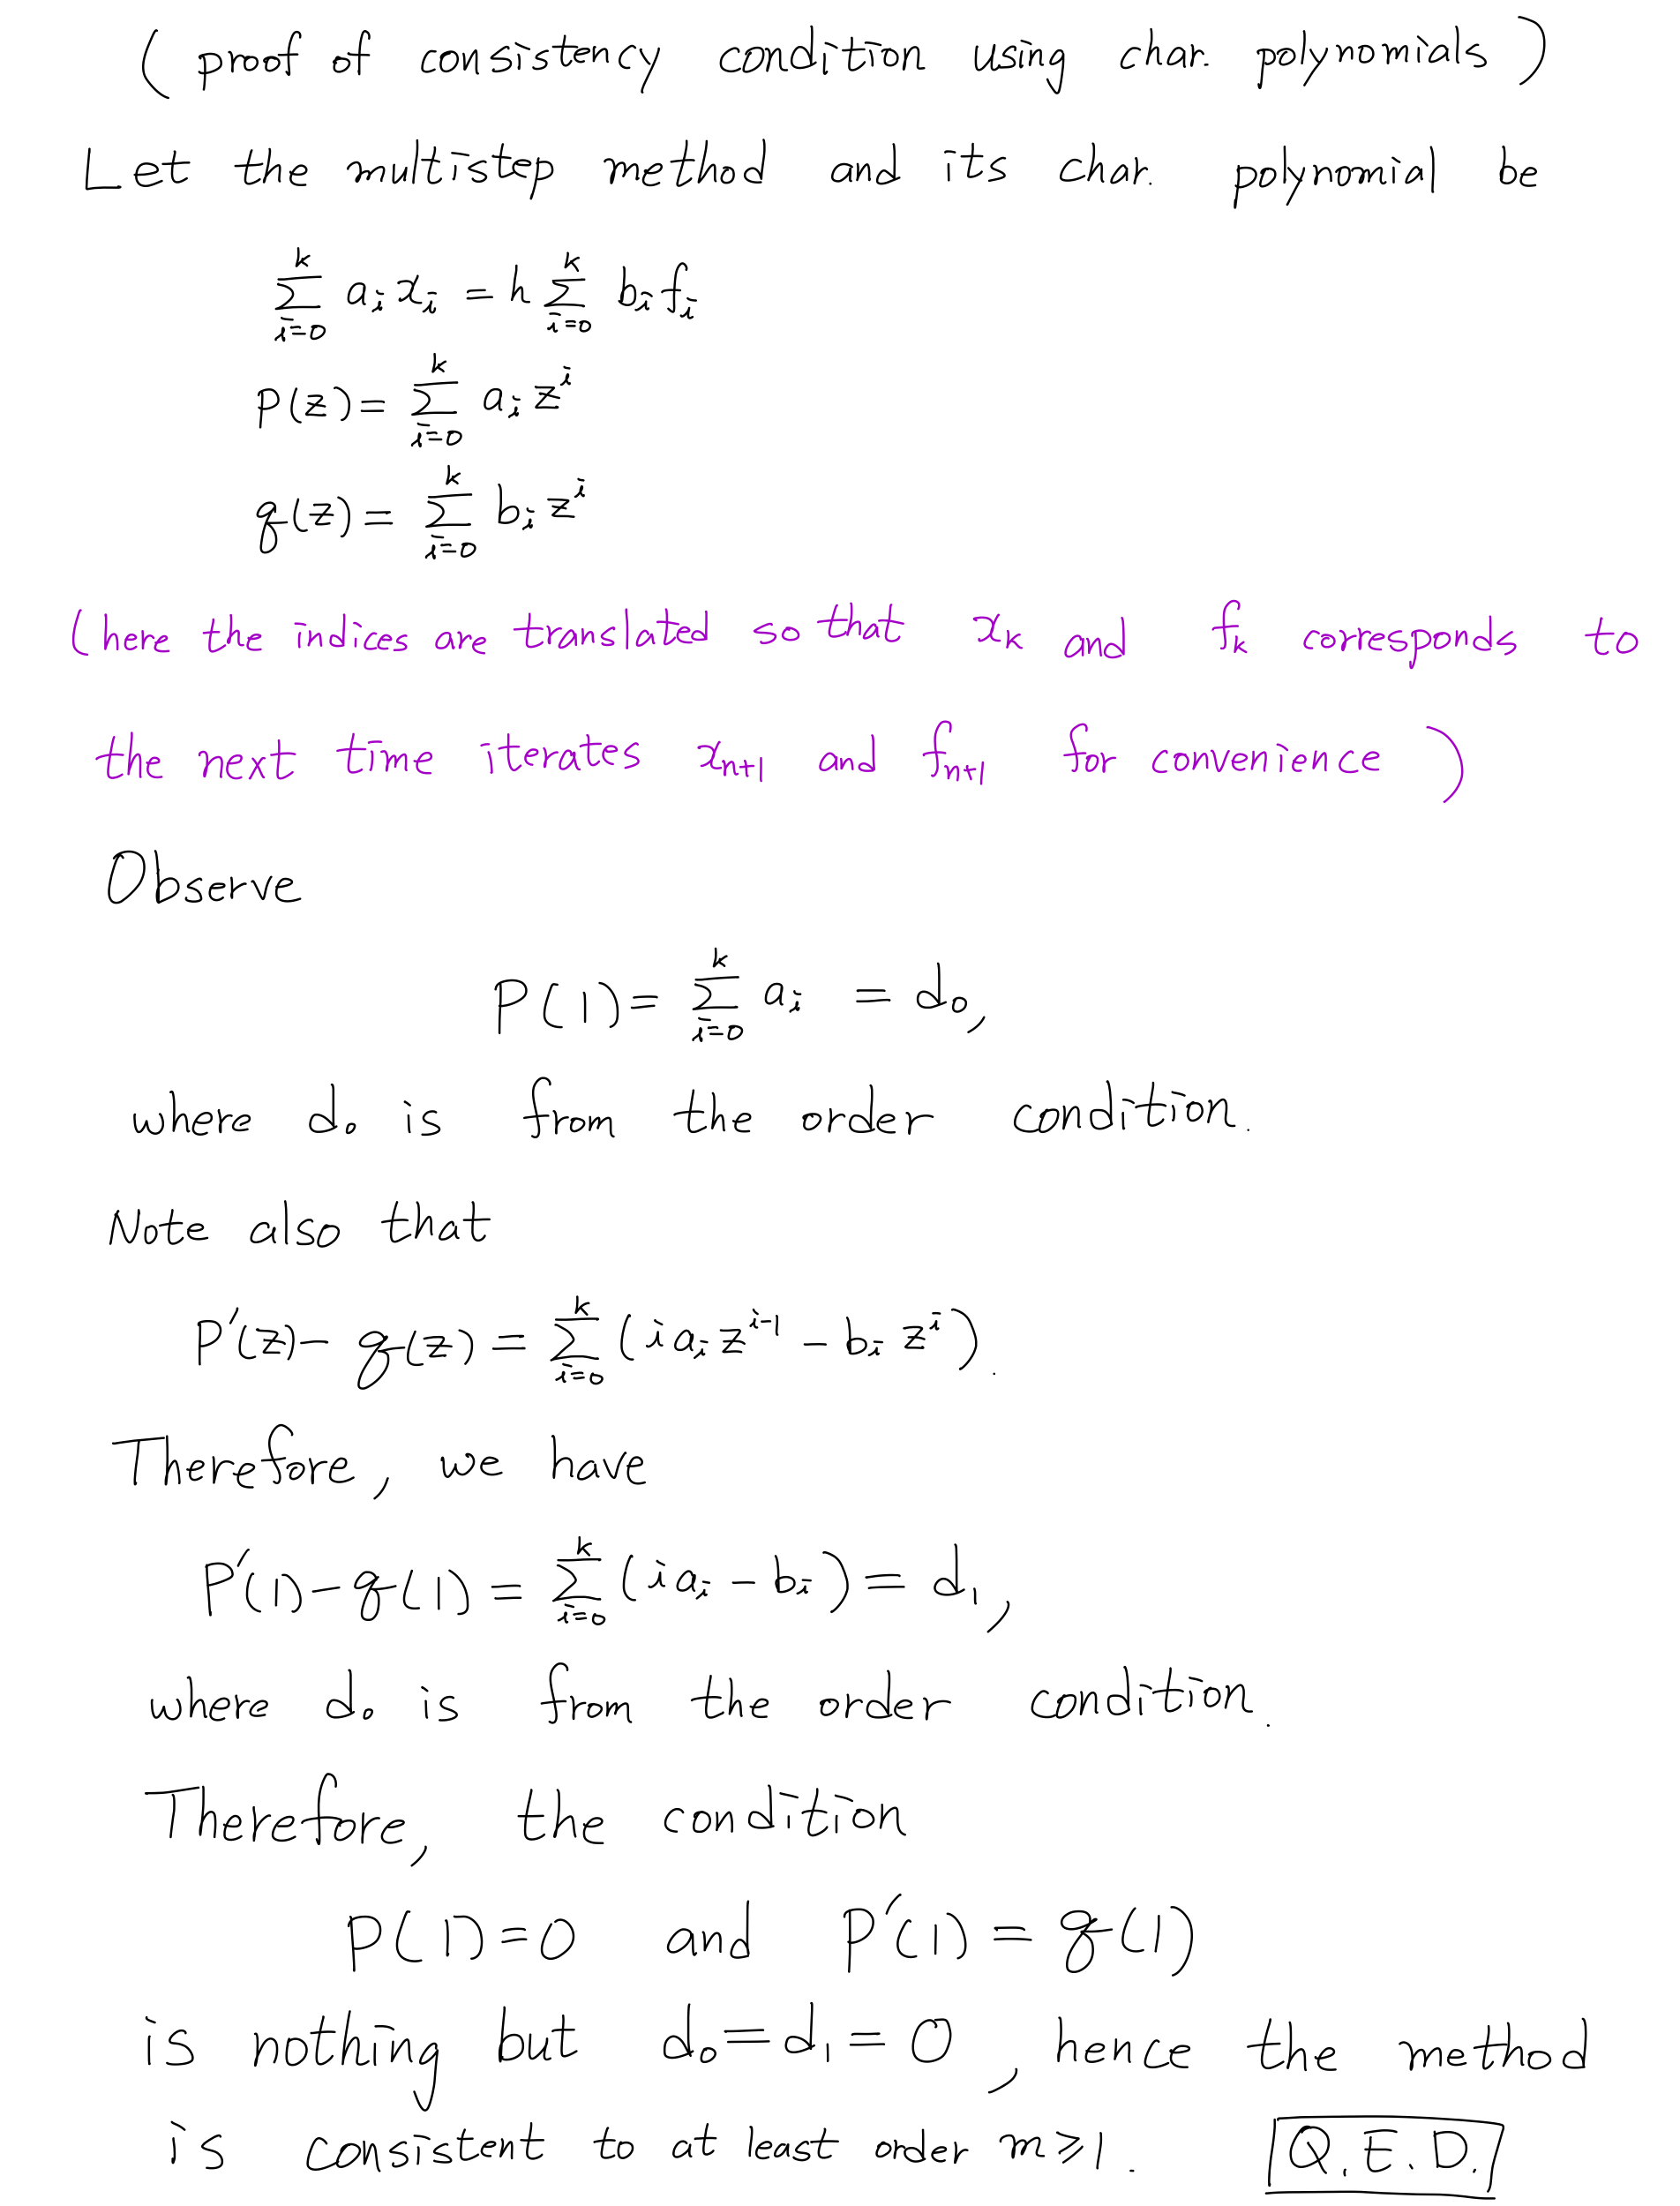 ( proof of consistency condition using char. polynomials )
Let the multistep method and its char. polynomial be
$\sum_{i=0}^{k} a_i x_i = h \sum_{i=0}^{k} b_i f_i$
$p(z) = \sum_{i=0}^{k} a_i z^i$
$q(z) = \sum_{i=0}^{k} b_i z^i$
(here the indices are translated so that $x_k$ and $f_k$ corresponds to
the next time iterates $x_{n+1}$ and $f_{n+1}$ for convenience )
Observe
$P(1) = \sum_{i=0}^{k} a_i = d_0,$
where $d_0$ is from the order condition.
Note also that
$P'(z) - q(z) = \sum_{i=0}^{k} (i a_i z^{i-1} - b_i z^i).$
Therefore, we have
$P'(1) - q(1) = \sum_{i=0}^{k} (i a_i - b_i) = d_1,$
where $d_0$ is from the order condition.
Therefore, the condition
$P(1) = 0$ and $P'(1) = q(1)$
is nothing but $d_0 = d_1 = 0$, hence the method
is consistent to at least order $m \geqslant 1$. Q.E.D.